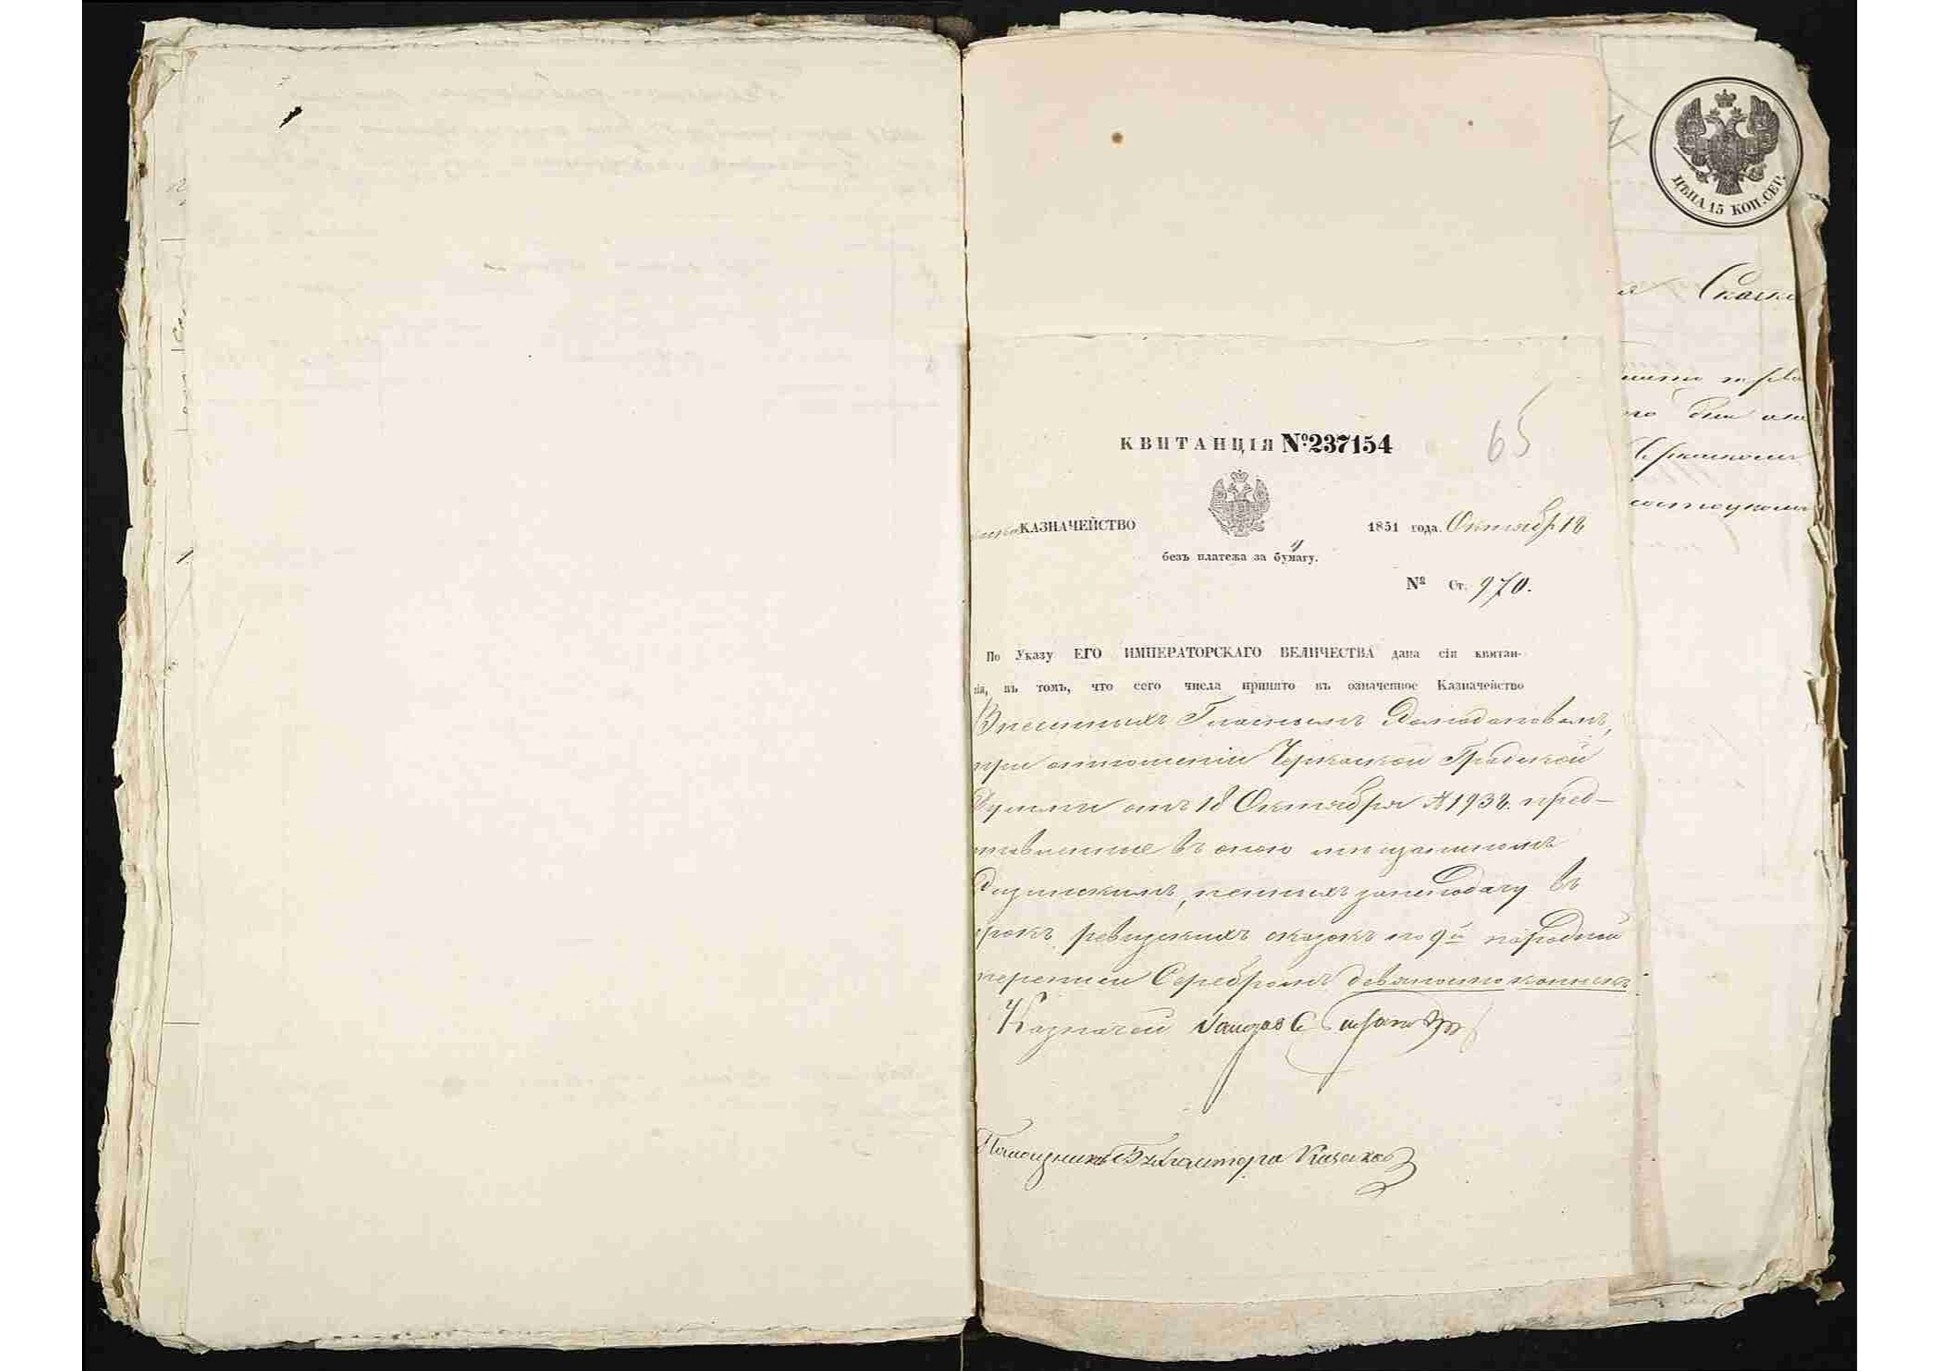 ЦѢНА 15 КОП. СЕР.
Сказка
65
КВИТАНЦІЯ №237154
КАЗНАЧЕЙСТВО
1851 года. Октября 18
безъ платежа за бумагу.
№ Ст. 970.
По Указу ЕГО ИМПЕРАТОРСКАГО ВЕЛИЧЕСТВА дана сія квитан-
ія, въ томъ, что сего числа принято въ означенное Казначейство
Внесенныхъ Гласнымъ
при отношеніи Черкаской Градской
Думы отъ 18 Октября № 1938. пред-
ставленные въ оною мещаниномъ
пенныхъ за неподачу въ
срокъ ревизскихъ сказокъ по 9й народной
переписи Серебромъ девяносто копѣекъ.
Казначей
Помощникъ Бухгалтера Казаков